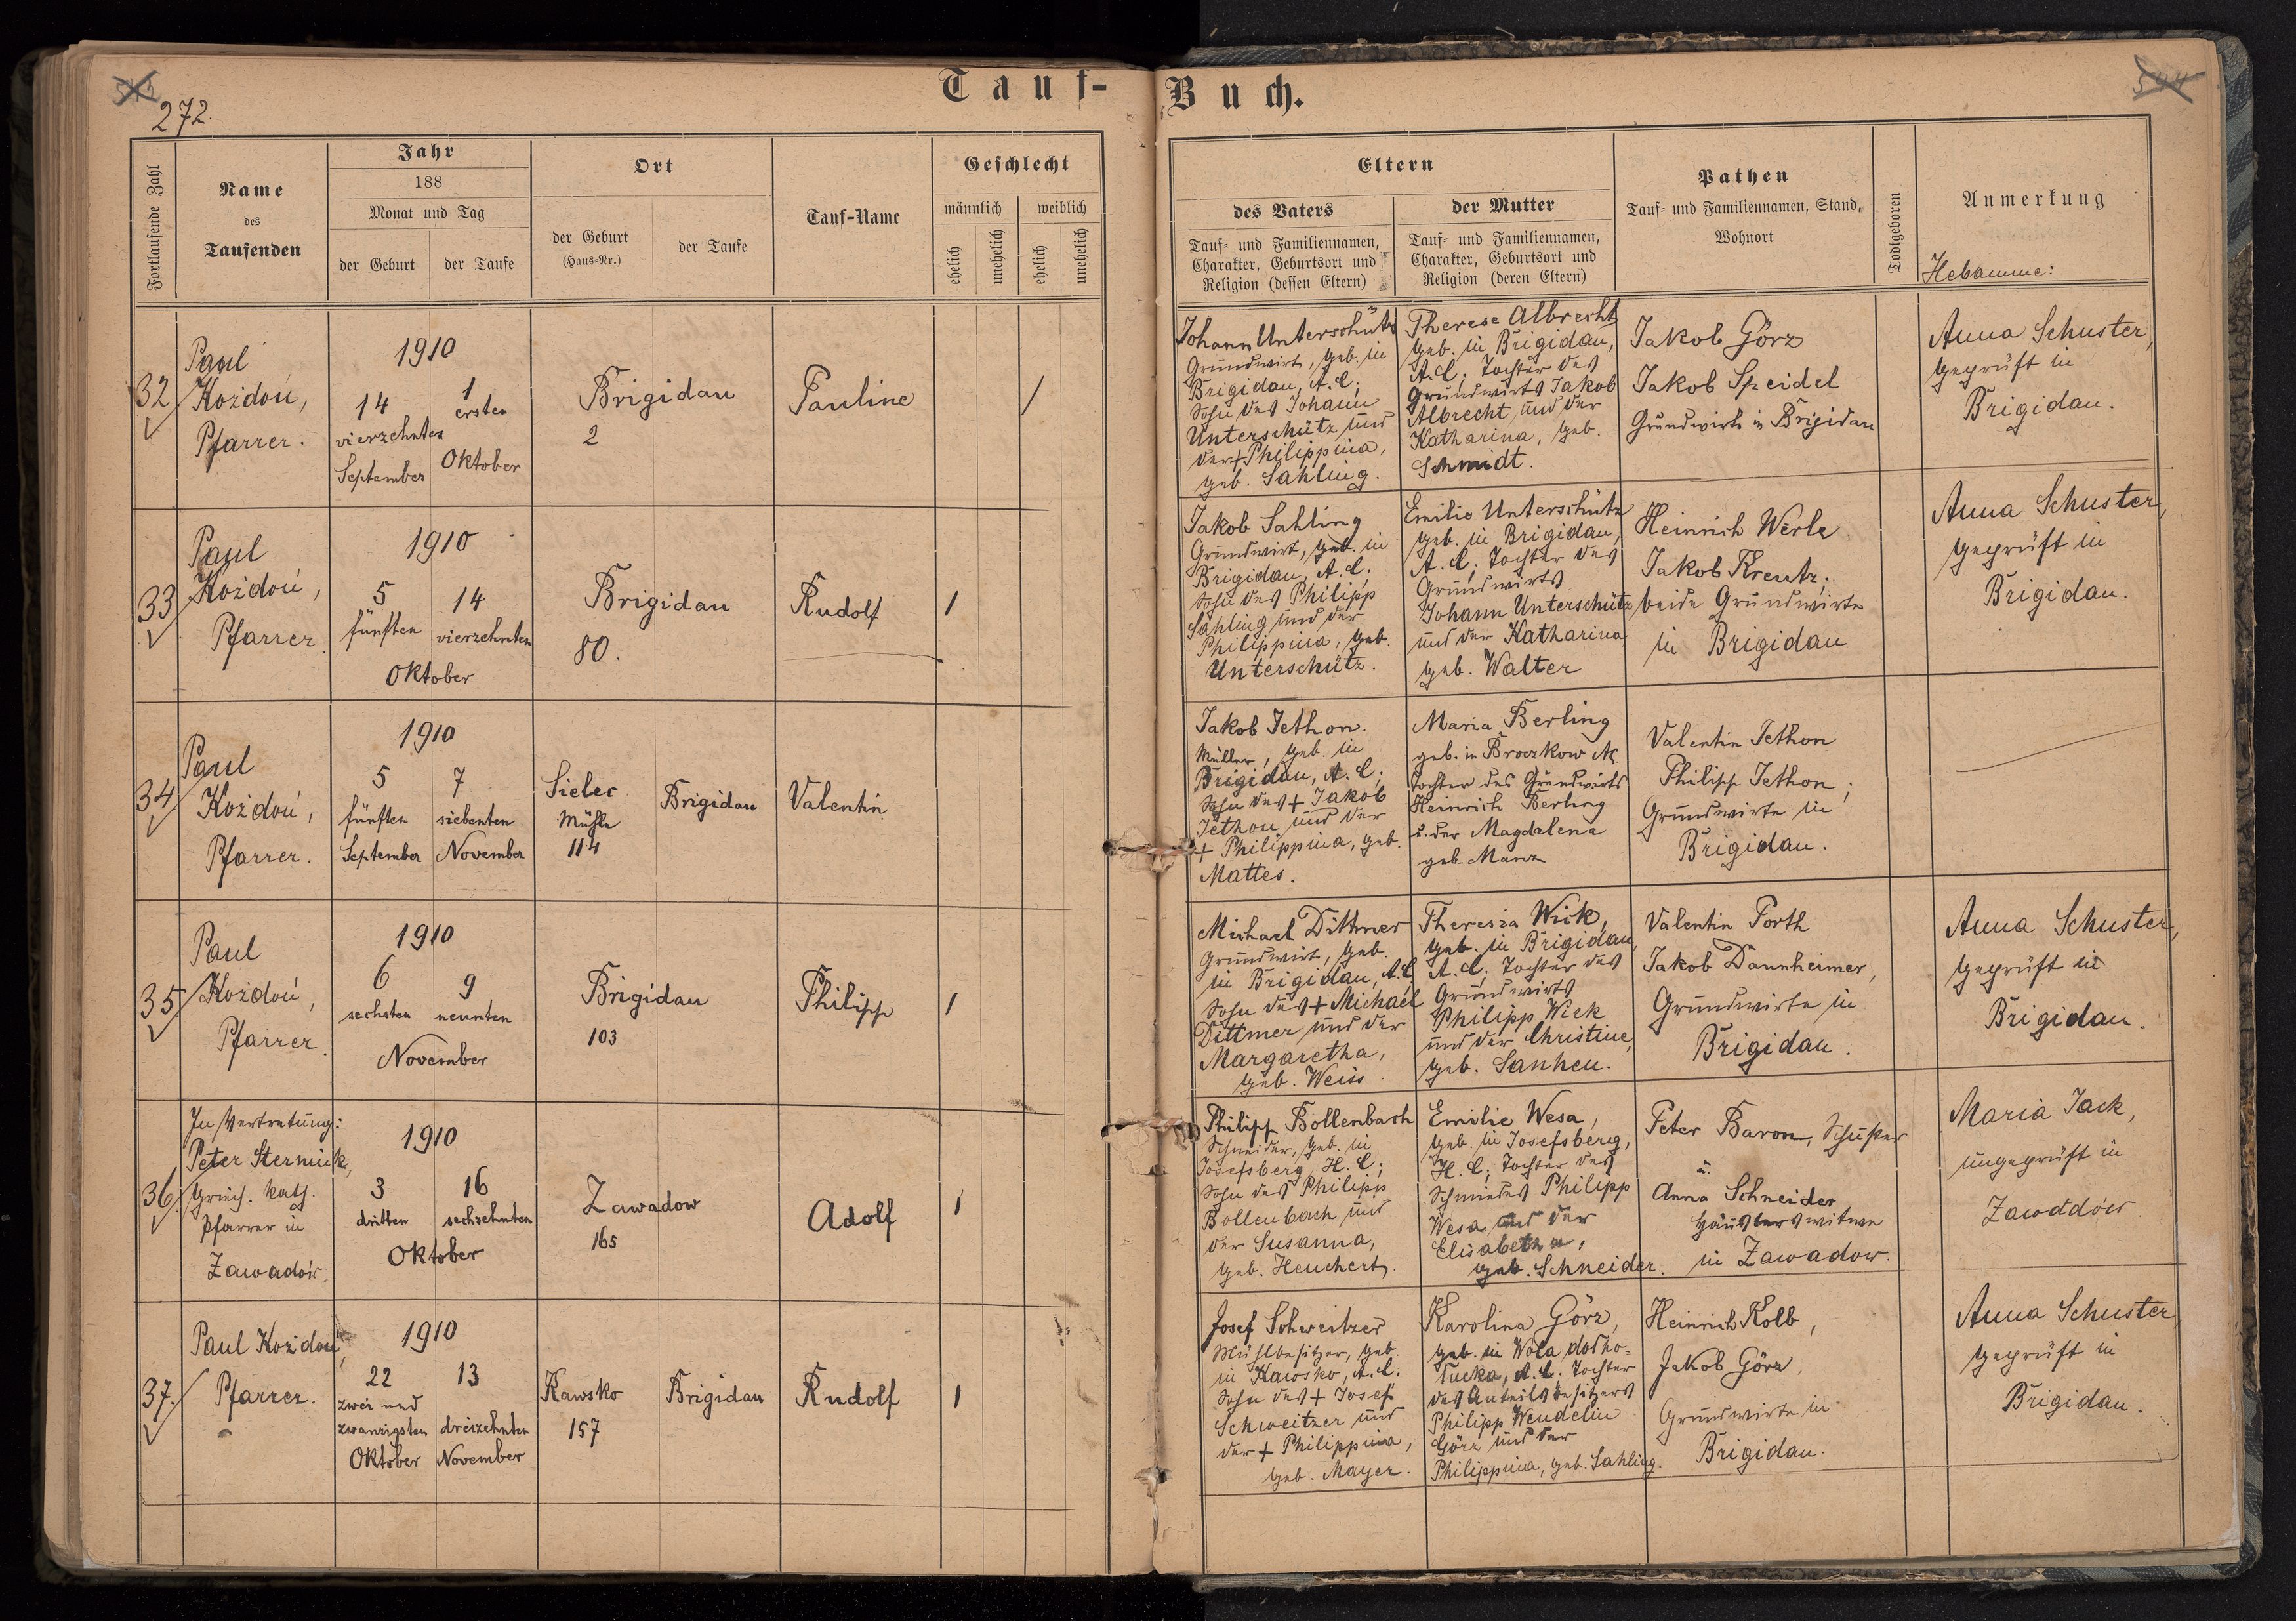 272.
Tauf-Buch.
Fortlaufende Zahl
Name
des
Taufenden
Jahr
188
Monat und Tag
der Geburt
der Taufe
Ort
der Geburt
(Haus-Nr.)
der Taufe
Tauf-Name
Geschlecht
männlich
weiblich
ehelich
unehelich
ehelich
unehelich
Eltern
des Vaters
Tauf- und Familiennamen,
Charakter, Geburtsort und
Religion (dessen Eltern)
der Mutter
Tauf- und Familiennamen,
Charakter, Geburtsort und
Religion (deren Eltern)
Pathen
Tauf- und Familiennamen, Stand,
Wohnort
Todtgeboren
Anmerkung
Hebamme:
32
Paul
Kożdoń,
Pfarrer.
1910
14
vierzehnten
September
1
ersten
Oktober
Brigidau
2
Pauline
/
Johann Unterschütz
Grundwirt, geb. in
Brigidau, A.C.;
Sohn des Johann
Unterschütz und
der + Philippina,
geb. Sahling.
Therese Albrecht
geb. in Brigidau,
A.C. Tochter des
Grundwirts Jakob
Albrecht und der
Katharina, geb.
Schmidt.
Jakob Görz
Jakob Speidel
Grundwirte in Brigidau
Anna Schuster,
geprüft in
Brigidau.
33
Paul
Kożdoń,
Pfarrer.
1910
5
fünften
14
vierzehnten
Oktober
Brigidau
80.
Rudolf
1
Jakob Sahling
Grundwirt, geb. in
Brigidau, A.C.
Sohn des Philipp
Sahling und der
Philippina, geb.
Unterschütz.
Emilie Unterschütz
geb. in Brigidau,
A.C; Tochter des
Grundwirts
Johann Unterschütz
und der Katharina
geb. Walter
Heinrich Werle
Jakob Kreutz;
beide Grundwirte
in Brigidau
Anna Schuster,
geprüft in
Brigidau.
34
Paul
Kożdoń,
Pfarrer.
1910
5
fünften
September
7
siebenten
November
Sielec
Mühle
114
Brigidau
Valentin
Jakob Jethon.
Müller, geb. in
Brigidau, A.C;
Sohn des + Jakob
Jethon und der
+ Philippina, geb.
Mattes.
Maria Berling
geb. in Broczkow AC.
Tochter des Grundwirts
Heinrich Berling
u. der Magdalena
geb. Manz
Valentin Jethon
Philipp Jethon;
Grundwirte in
Brigidau.
35
Paul
Kożdoń,
Pfarrer.
1910
6
sechsten
9
neunten
November
Brigidau
103
Philipp
1
Michael Dittmer
Grundwirt, geb.
in Brigidau, A.C,
Sohn des + Michael
Dittmer und der
Margaretha,
geb. Weiss.
Theresia Wick,
geb. in Brigidau,
A.C. Tochter des
Grundwirts
Philipp Wick
und der Christine,
geb. Sanheu.
Valentin Porth
Jakob Dannheimer,
Grundwirte in
Brigidau.
Anna Schuster,
geprüft in
Brigidau.
36
In Vertretung:
Peter Sterniuk,
Griech. kath.
Pfarrer in
Zawadów.
1910
3
dritten
16
sechzehnten
Oktober
Zawadow
165
Adolf
1
Philipp Bollenbach
Schneider, geb. in
Josefsberg, H.C;
Sohn des Philipp
Bollenbach und
der Susanna,
geb. Heuchert.
Emilie Wesa,
geb. in Josefsberg,
H.C; Tochter des
Schmiedes Philipp
Wesa und der
Elisabetha,
geb. Schneider.
Peter Baron, Schuster
u.
Anna Schneider
Häuslerswitwe
in Zawadow.
Maria Jack,
ungeprüft in
Zawadów.
37.
Paul Kożdoń,
Pfarrer.
1910
22
zwei und
zwanzigsten
Oktober
13
dreizehnten
November
Kawsko
157
Brigidau
Rudolf
1
Josef Schweitzer
Mühlbesitzer, geb.
in Kawsko, A.C.
Sohn des + Josef
Schweitzer und
der + Philippina,
geb. Mayer.
Karolina Görz,
geb. in Wola dołho-
łucka, A.C. Tochter
des Anteilsbesitzers
Philipp Wendelin
Görz und der
Philippina, geb. Sahling.
Heinrich Kolb,
Jakob Görz,
Grundwirte in
Brigidau.
Anna Schuster
geprüft in
Brigidau.